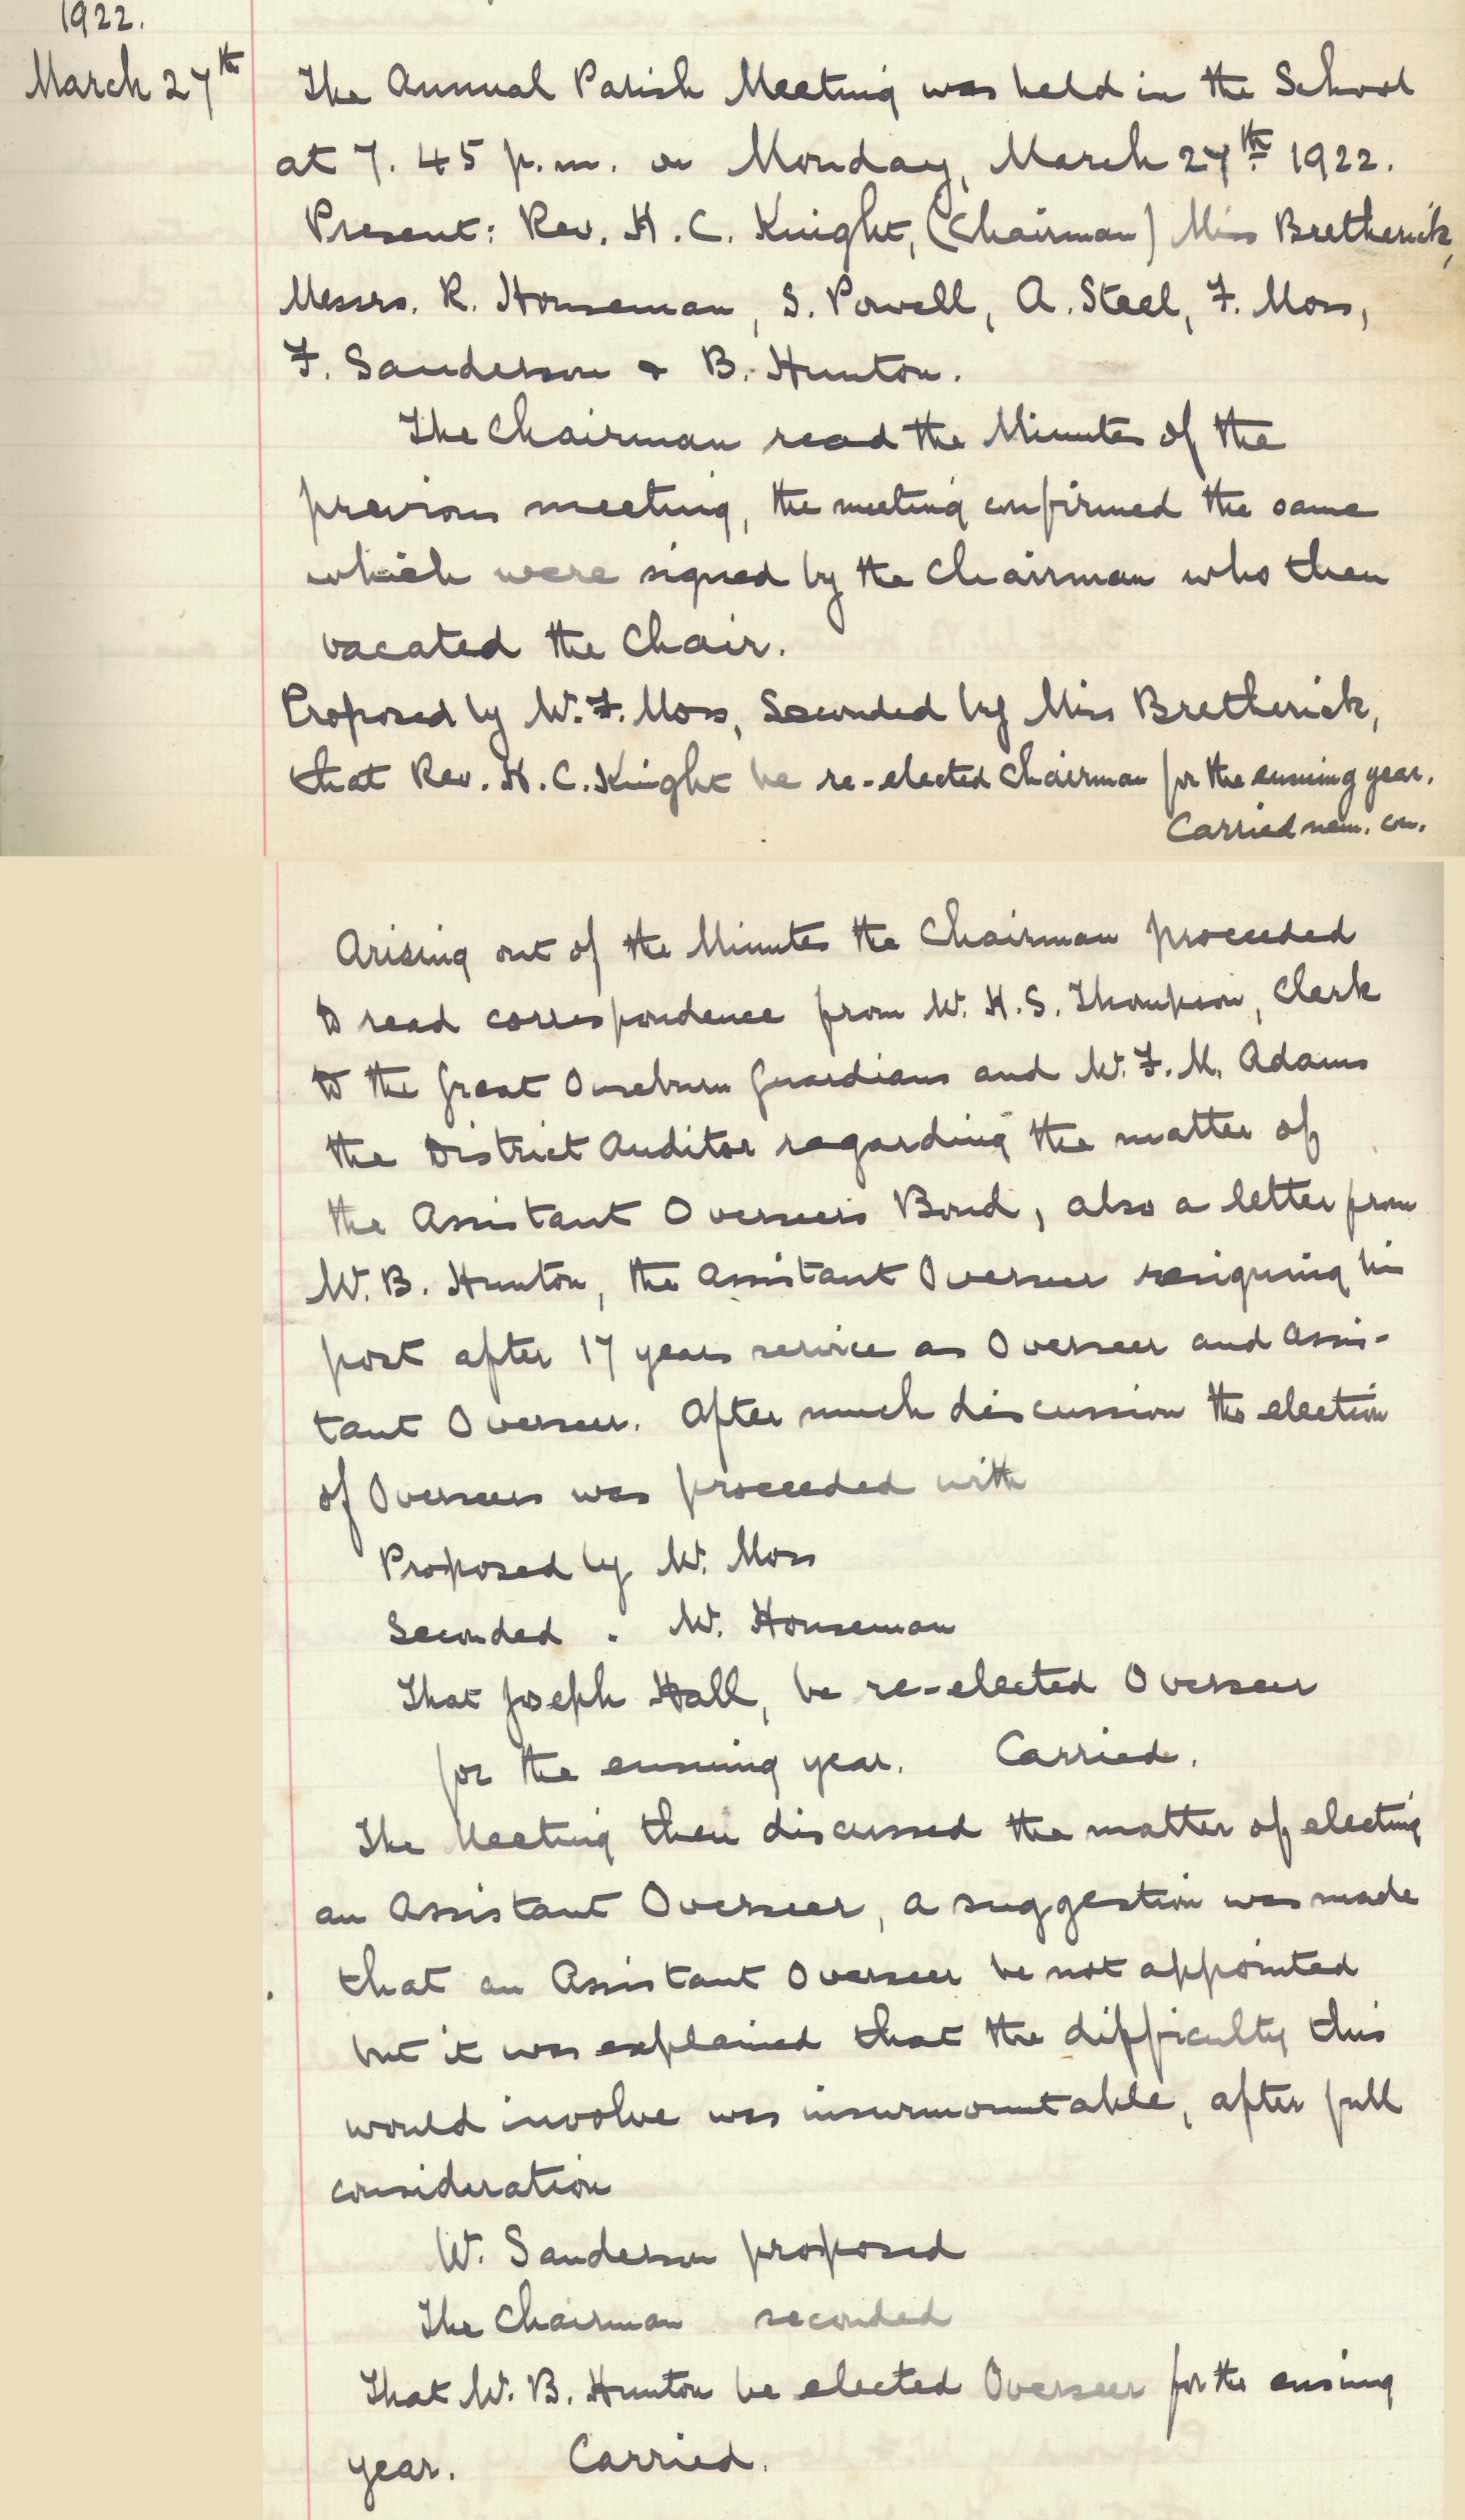 1922.
March 27th
The Annual Parish Meeting was held in the School
at 7.45 p.m. on Monday, March 27th 1922.
Present: Rev. H. C. Knight, (Chairman) Miss Bretherick,
Messrs. R. Houseman, S. Powell, A. Steel, F. Moss,
F. Sanderson & B. Hunton.
The Chairman read the Minutes of the
previous meeting, the meeting confirmed the same
which were signed by the Chairman who then
vacated the Chair.
Proposed by Mr. F. Moss, Seconded by Miss Bretherick,
that Rev. H. C. Knight be re-elected Chairman for the ensuing year.
Carried nem. con.
Arising out of the Minutes the Chairman proceeded
to read correspondence from Mr. H. S. Thompson, Clerk
to the Great Ouseburn Guardians and Mr. F. M. Adams
the District Auditor regarding the matter of
the Assistant Overseers Bond, also a letter from
Mr. B. Hunton, the Assistant Overseer resigning his
post after 17 years service as Overseer and Assis-
tant Overseer. After much discussion the election
of Overseers was proceeded with
Proposed by Mr. Moss
Seconded . Mr. Houseman
That Joseph Hall, be re-elected Overseer
for the ensuing year. Carried.
The Meeting then discussed the matter of electing
an Assistant Overseer, a suggestion was made
that an Assistant Overseer be not appointed
but it was explained that the difficulty this
would involve was insurmountable, after full
consideration
Mr. Sanderson proposed
The Chairman seconded
That Mr. B. Hunton be elected Overseer for the ensuing
year. Carried.